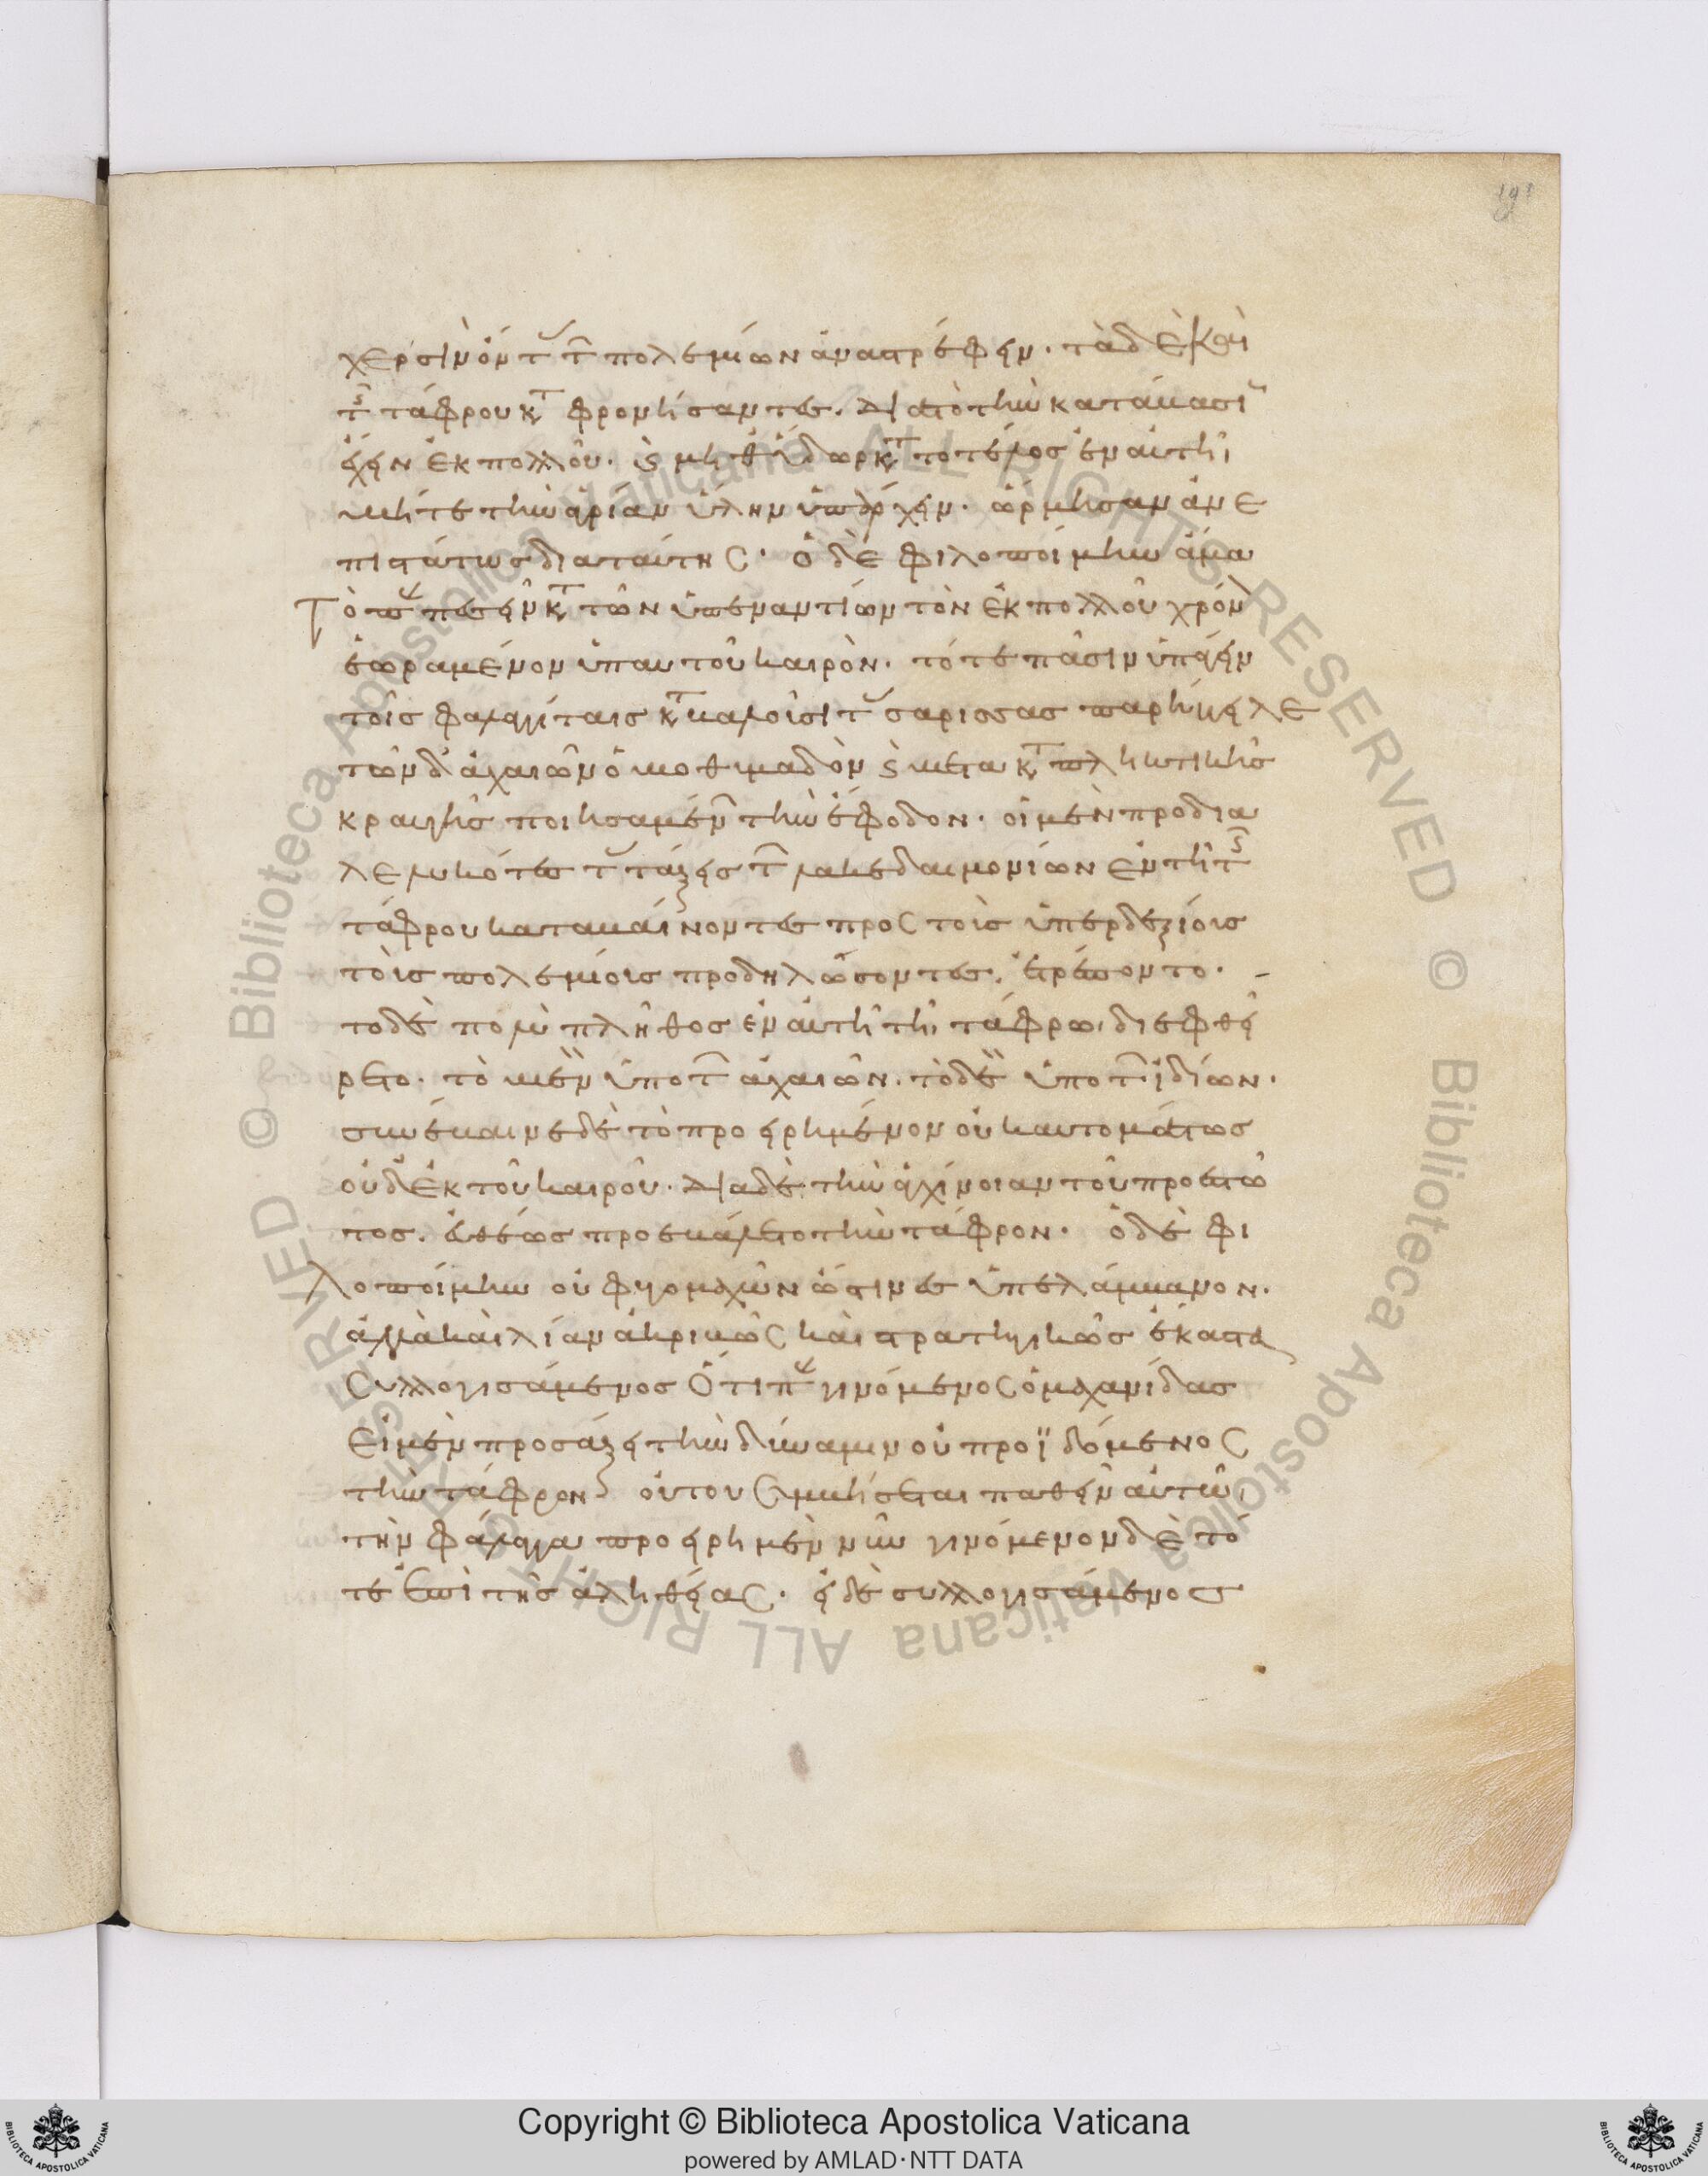 191
χερσὶν ὄντ τ πολεμίων ἀναστρέφειν· τὰ δὲ καὶ
τ τάφρου κτ φρονήσαντες· διὰ τὸ τὴν κατάβασι
ἔχειν ἐκ πολλοῦ· ς μήθ ὕδωρ κτ τὸ τέλος ἐν αὐτῆι
μήτε τὴν ἀγρίαν ὕλην ὑπάρχειν· ὥρμησαν ἀνε
πιστάτως διὰ ταύτης· ὁ δὲ φιλοποίμην ἅμα
τὸ π πεσεῖν κτ τῶν ὑπεναντίων τὸν ἐκ πολλοῦ χρόν
ἑωραμένον ὑπ αυτοῦ καιρὸν· τότε πᾶσιν ὑπάγειν
τοῖς φαλαγγίταις κτβαλοῦσι τ σαρισσας παρήγγειλε
τῶν δ ἀχαιῶν ὁμοθυμαδὸν ς μετα κτπληκτικῆς
κραυγῆς ποιησαμέν τὴν ἔφοδον· οἱ μὲν προδια
λελυκότες τ τάξεις τ λακεδαιμονίων ἐν τῆι τ
τάφρου καταβάινοντες προς τοῖς ὑπερδεξίοις
τοῖς πολεμίοις προδηλώσοντες· ἐτρέποντο·
το δὲ πολὺ πλῆθος ἐν αὐτῆι τῆι τάφρωι διεφθεί
ρετο· τὸ μὲν ὑπὸ τ ἀχαιῶν· τὸ δὲ ὑπὸ τ ἰδίων·
συνέβαινε δὲ τὸ προειρημένον οὐκ αυτομάτως
οὐδ ἐκ τοῦ καιροῦ· διὰ δὲ τὴν ἀγχίνοιαν τοῦ προεστῶ
τος· εὐθέως προεβάλετο τὴν τάφρον· ὁ δὲ φι
λοποίμην οὐ φυγομαχῶν ὥς τινες ὑπελάμβανον·
ἀλλὰ καὶ λίαν ἀκριβῶς καὶ στρατηγικῶς ἕκαστα
συλλογισάμενος ὅτι π γενόμενος ὁ μαχανίδας
εἰ μὲν προσάξει τὴν δύναμιν οὐ προϊδόμενος
τὴν τάφρον οὕτου συμβήσεται παθεῖν αὐτῶι
τὴν φάλαγγα προειρημὲν νῦν γινόμενον δὲ τό
τε ἐπὶ τῆς ἀληθείας· εἰ δὲ συλλογισάμενος
Copyright © Biblioteca Apostolica Vaticana
powered by AMLAD·NTT DATA